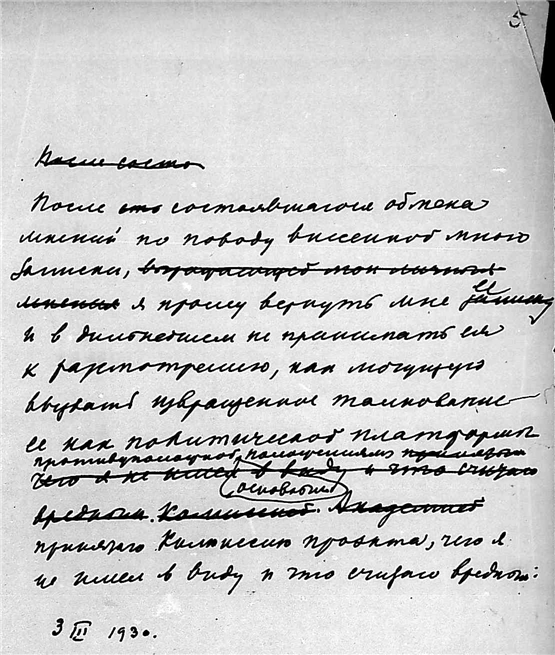 5
После состо
После сто состоявшагося обмена
мнений по поводу внесенной мною
Записки, выражающей мои личныя
мнения я прошу вернуть мне ее записку
и в дальнейшем не принимать ея
к разсмотрению, как могущую
вызвать извращенное толкование
ее как политической платформы
противуположной положениям
чего я не имел в виду и что считаю
основаниям
вредным. Комиссией. Академией
принятаго Комиссию проэкта, чего я
не имел в виду и что считаю вредным.
3 III 1930.